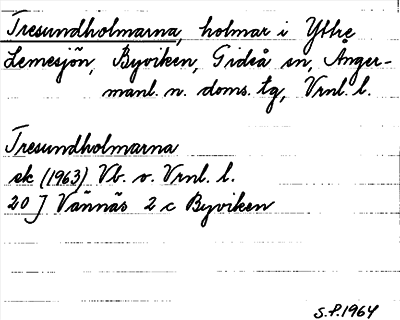 Tresundholmarna, holmar i Yttre
Lemesjön, Byviken, Gideå sn, Anger-
manl. n. doms. tg, Vrnl. l.
Tresundholmarna
ek (1963) Vb. o. Vrnl. l.
20 J Vännäs 2 c Byviken
S.P. 1964